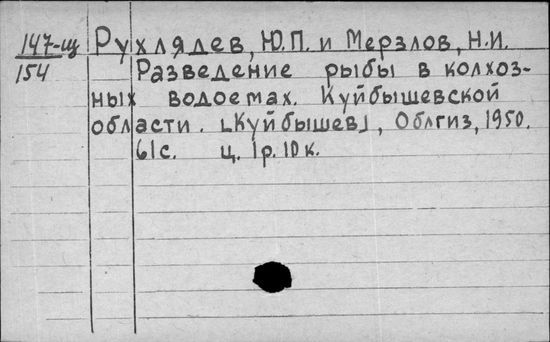 147-щ Рухлядев, Ю.П. и Мерзлов, Н.И.
154 Разведение рыбы в колхоз-
ных водоемах. Куйбышевской
области. [Куйбышев], Облгиз, 1950.
61с. ц. 1р. 10к.